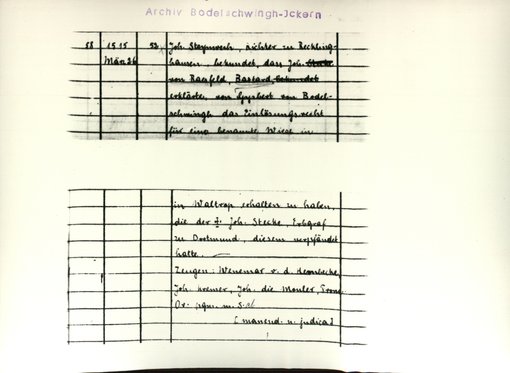 Archiv Bodelschwingh-Ickern
88 1515 52, Joh. Steynwech, Richter zu Reckling-
März 26 hausen, bekundet, das Joh. Stecke
von Raesfeld, Bastard, bekundet
erklärte, von Gysbert von Bodel-
schwingh das Einlösungsrecht
für eine benannte Wiese in
in Waltrop erhalten zu haben,
die der † Joh. Stecke, Erbgraf
zu Dortmund, diesem verpfändet
hatte.
Zeugen: Wenemar v. d. Heembecke,
Joh. Kremer, Joh. die Monler, Frone.
Or. Pgm. m. S.
[manend. u. judica]